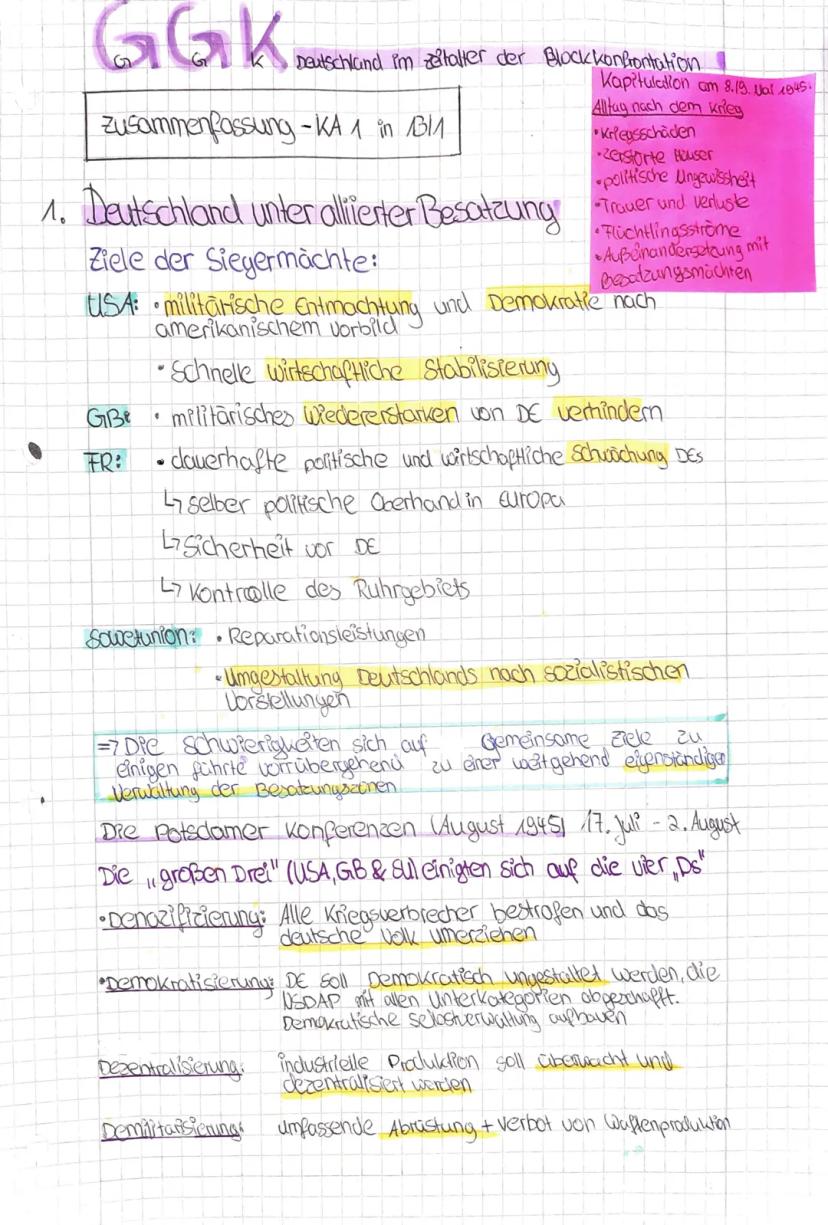 GGK Deutschland im Zeitalter der Blockkonfrontation
Kapitulation am 8./9. Mai 1945:
Alltag nach dem Krieg
• Kriegsschäden
• zerstörte Häuser
• politische Ungewissheit
• Trauer und Verluste
• Flüchtlingsströme
• Außeinandersetzung mit
Besatzungsmächten
Zusammenfassung - KA 1 in 13/1
1. Deutschland unter alliierter Besatzung
Ziele der Siegermächte:
USA: • militärische Entmachtung und Demokratie nach
amerikanischem Vorbild
• Schnelle wirtschaftliche Stabilisierung
GB: • militärisches Wiedererstarken von DE verhindern
FR: • dauerhafte politische und wirtschaftliche Schwächung DEs
↳ selber politische Oberhand in Europa
↳ Sicherheit vor DE
↳ Kontrolle des Ruhrgebiets
Sowetunion: • Reparationsleistungen
• Umgestaltung Deutschlands nach sozialistischen
Vorstellungen
=> Die Schwierigkeiten sich auf Gemeinsame Ziele zu
einigen führte vorrübergehend zu einer weitgehend eigenständigen
Verwaltung der Besatzungszonen
Die Potsdamer Konferenzen (August 1945) 17. Juli - 2. August
Die „großen Drei" (USA, GB & SU) einigten sich auf die vier „Ds"
• Denazifizierung: Alle Kriegsverbrecher bestrafen und das
deutsche Volk umerziehen
• Demokratisierung: DE soll Demokratisch ungestaltet werden, die
NSDAP mit allen Unterkategorien abgeschafft.
Demokratische selbstverwaltung aufbauen
Dezentralisierung: industrielle Produktion soll überwacht und
dezentralisiert werden
Demilitarisierung: umfassende Abrüstung + Verbot von Waffenproduktion